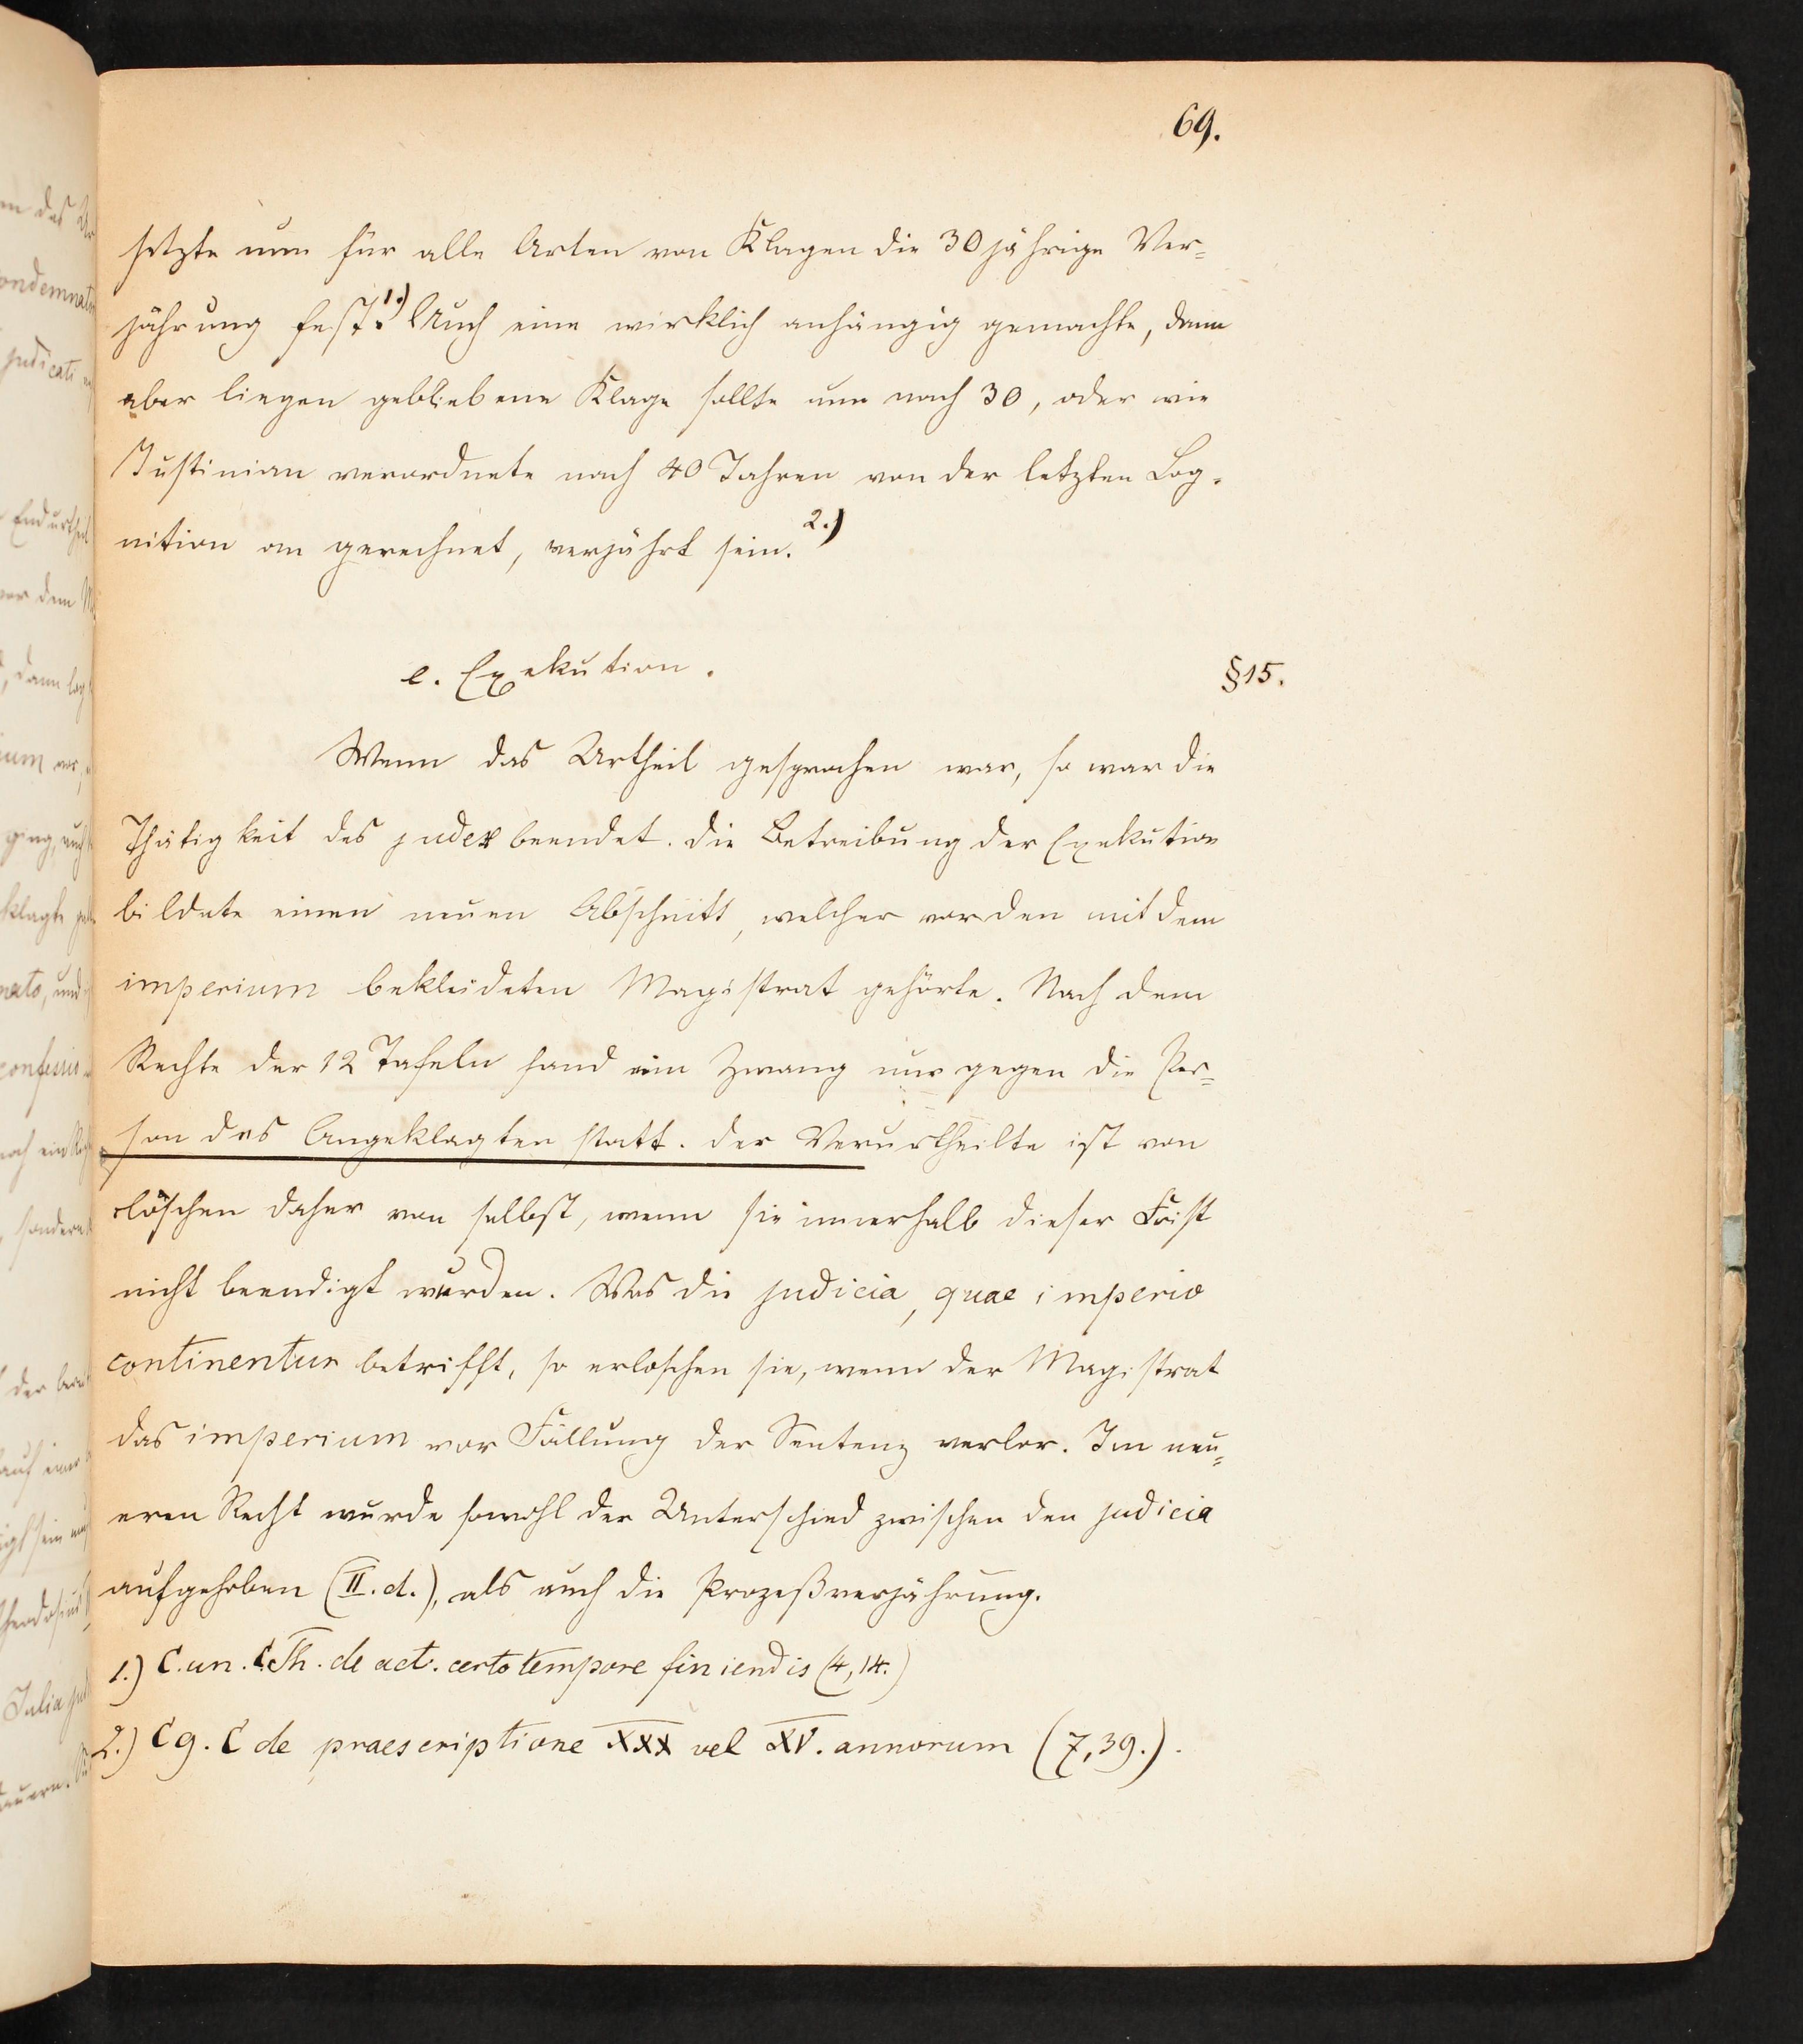 69.
setzte nun für alle Arten von Klagen die 30 jährige Ver=
jährung fest.1.) Auch eine wirklich anhängig gemachte, dann
aber liegen gebliebene Klage sollte nun nach 30, oder wie
Justinian verordnete nach 40 Jahren von der letzten Cog=
nition an gerechnet, verjährt sein.2.)
e. Exekution.
§ 15.
Wenn das Urtheil gesprochen war, so war die
Thätigkeit des judex beendet. Die Betreibung der Exekution
bildete einen neuen Abschnitt, welcher vor den mit dem
imperium bekleideten Magistrat gehörte. Nach dem
Rechte der 12 Tafeln fand ein Zwang nur gegen die Per=
son des Angeklagten statt. Der Verurtheilte ist von
löschen daher von selbst, wenn sie innerhalb dieser Frist
nicht beendigt wurden. Was die judicia, quae imperio
continentur betrifft, so erloschen sie, wenn der Magistrat
das imperium vor Fällung der Sentenz verlor. Im neu=
eren Recht wurde sowohl der Unterschied zwischen den judicia
aufgehoben (II. d.), als auch die Prozeßverjährung.
1.) C. un. C. Th. de act. certo tempore finiendis (4, 14.)
2.) C 9. C de praescriptione XXX vel XV. annorum (7, 39.).